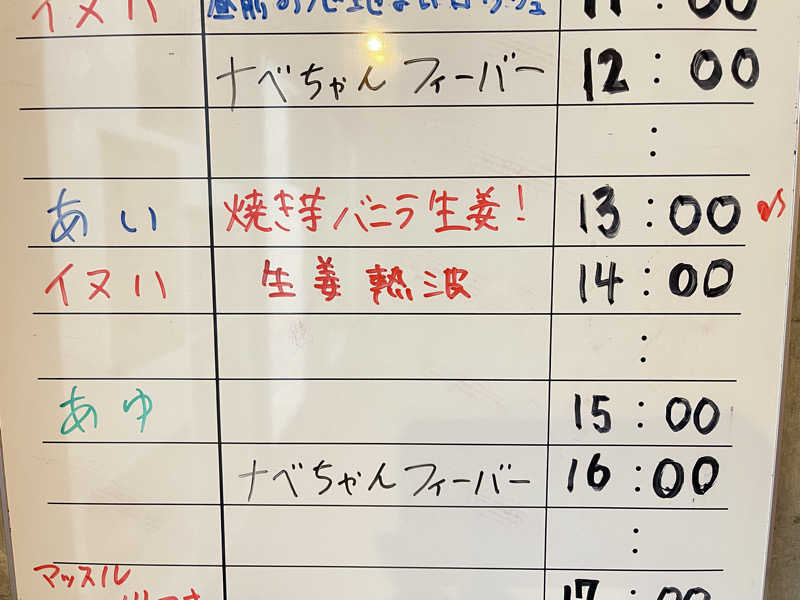 イヌハ 11:00
ナベちゃんフィーバー 12:00
:
あい 焼き芋バニラ生姜! 13:00
イヌハ 生姜熱波 14:00
:
あゆ 15:00
ナベちゃんフィーバー 16:00
:
マッスル 17:00